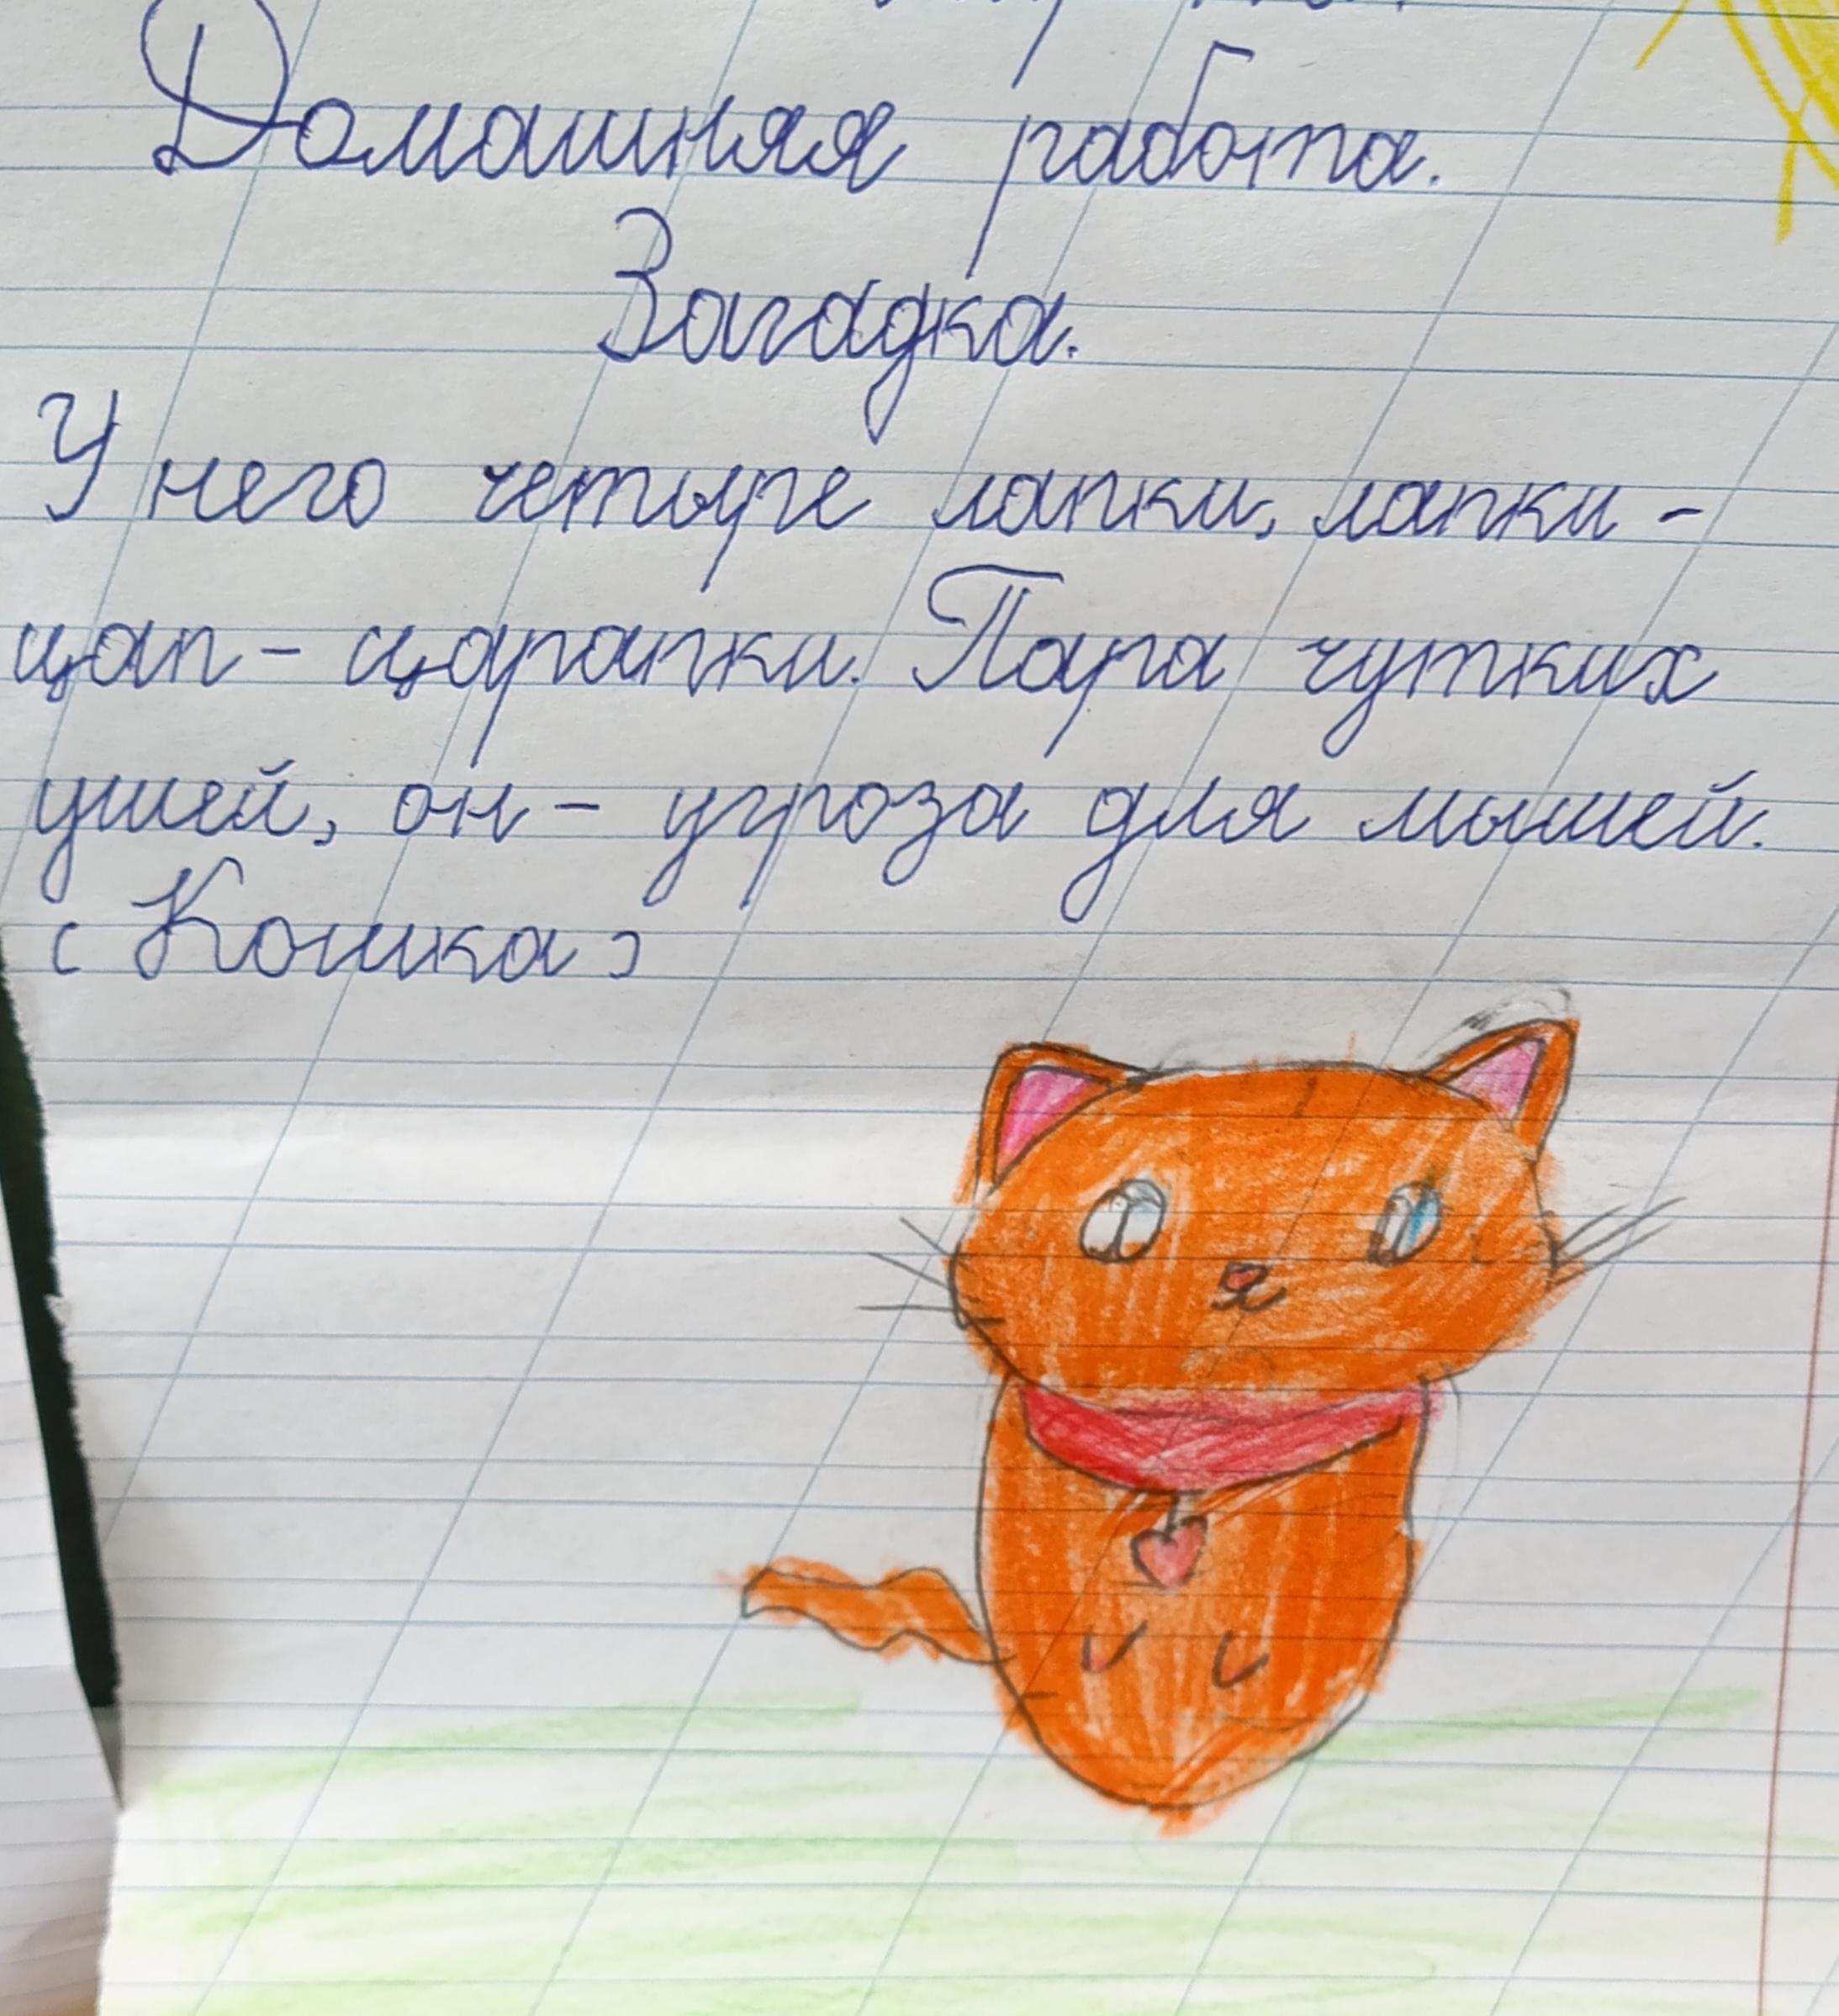 Домашняя работа.
Загадка.
У него четыре лапки, лапки -
цап - царапки. Пара чутких
ушей, он - угроза для мышей.
(Кошка)